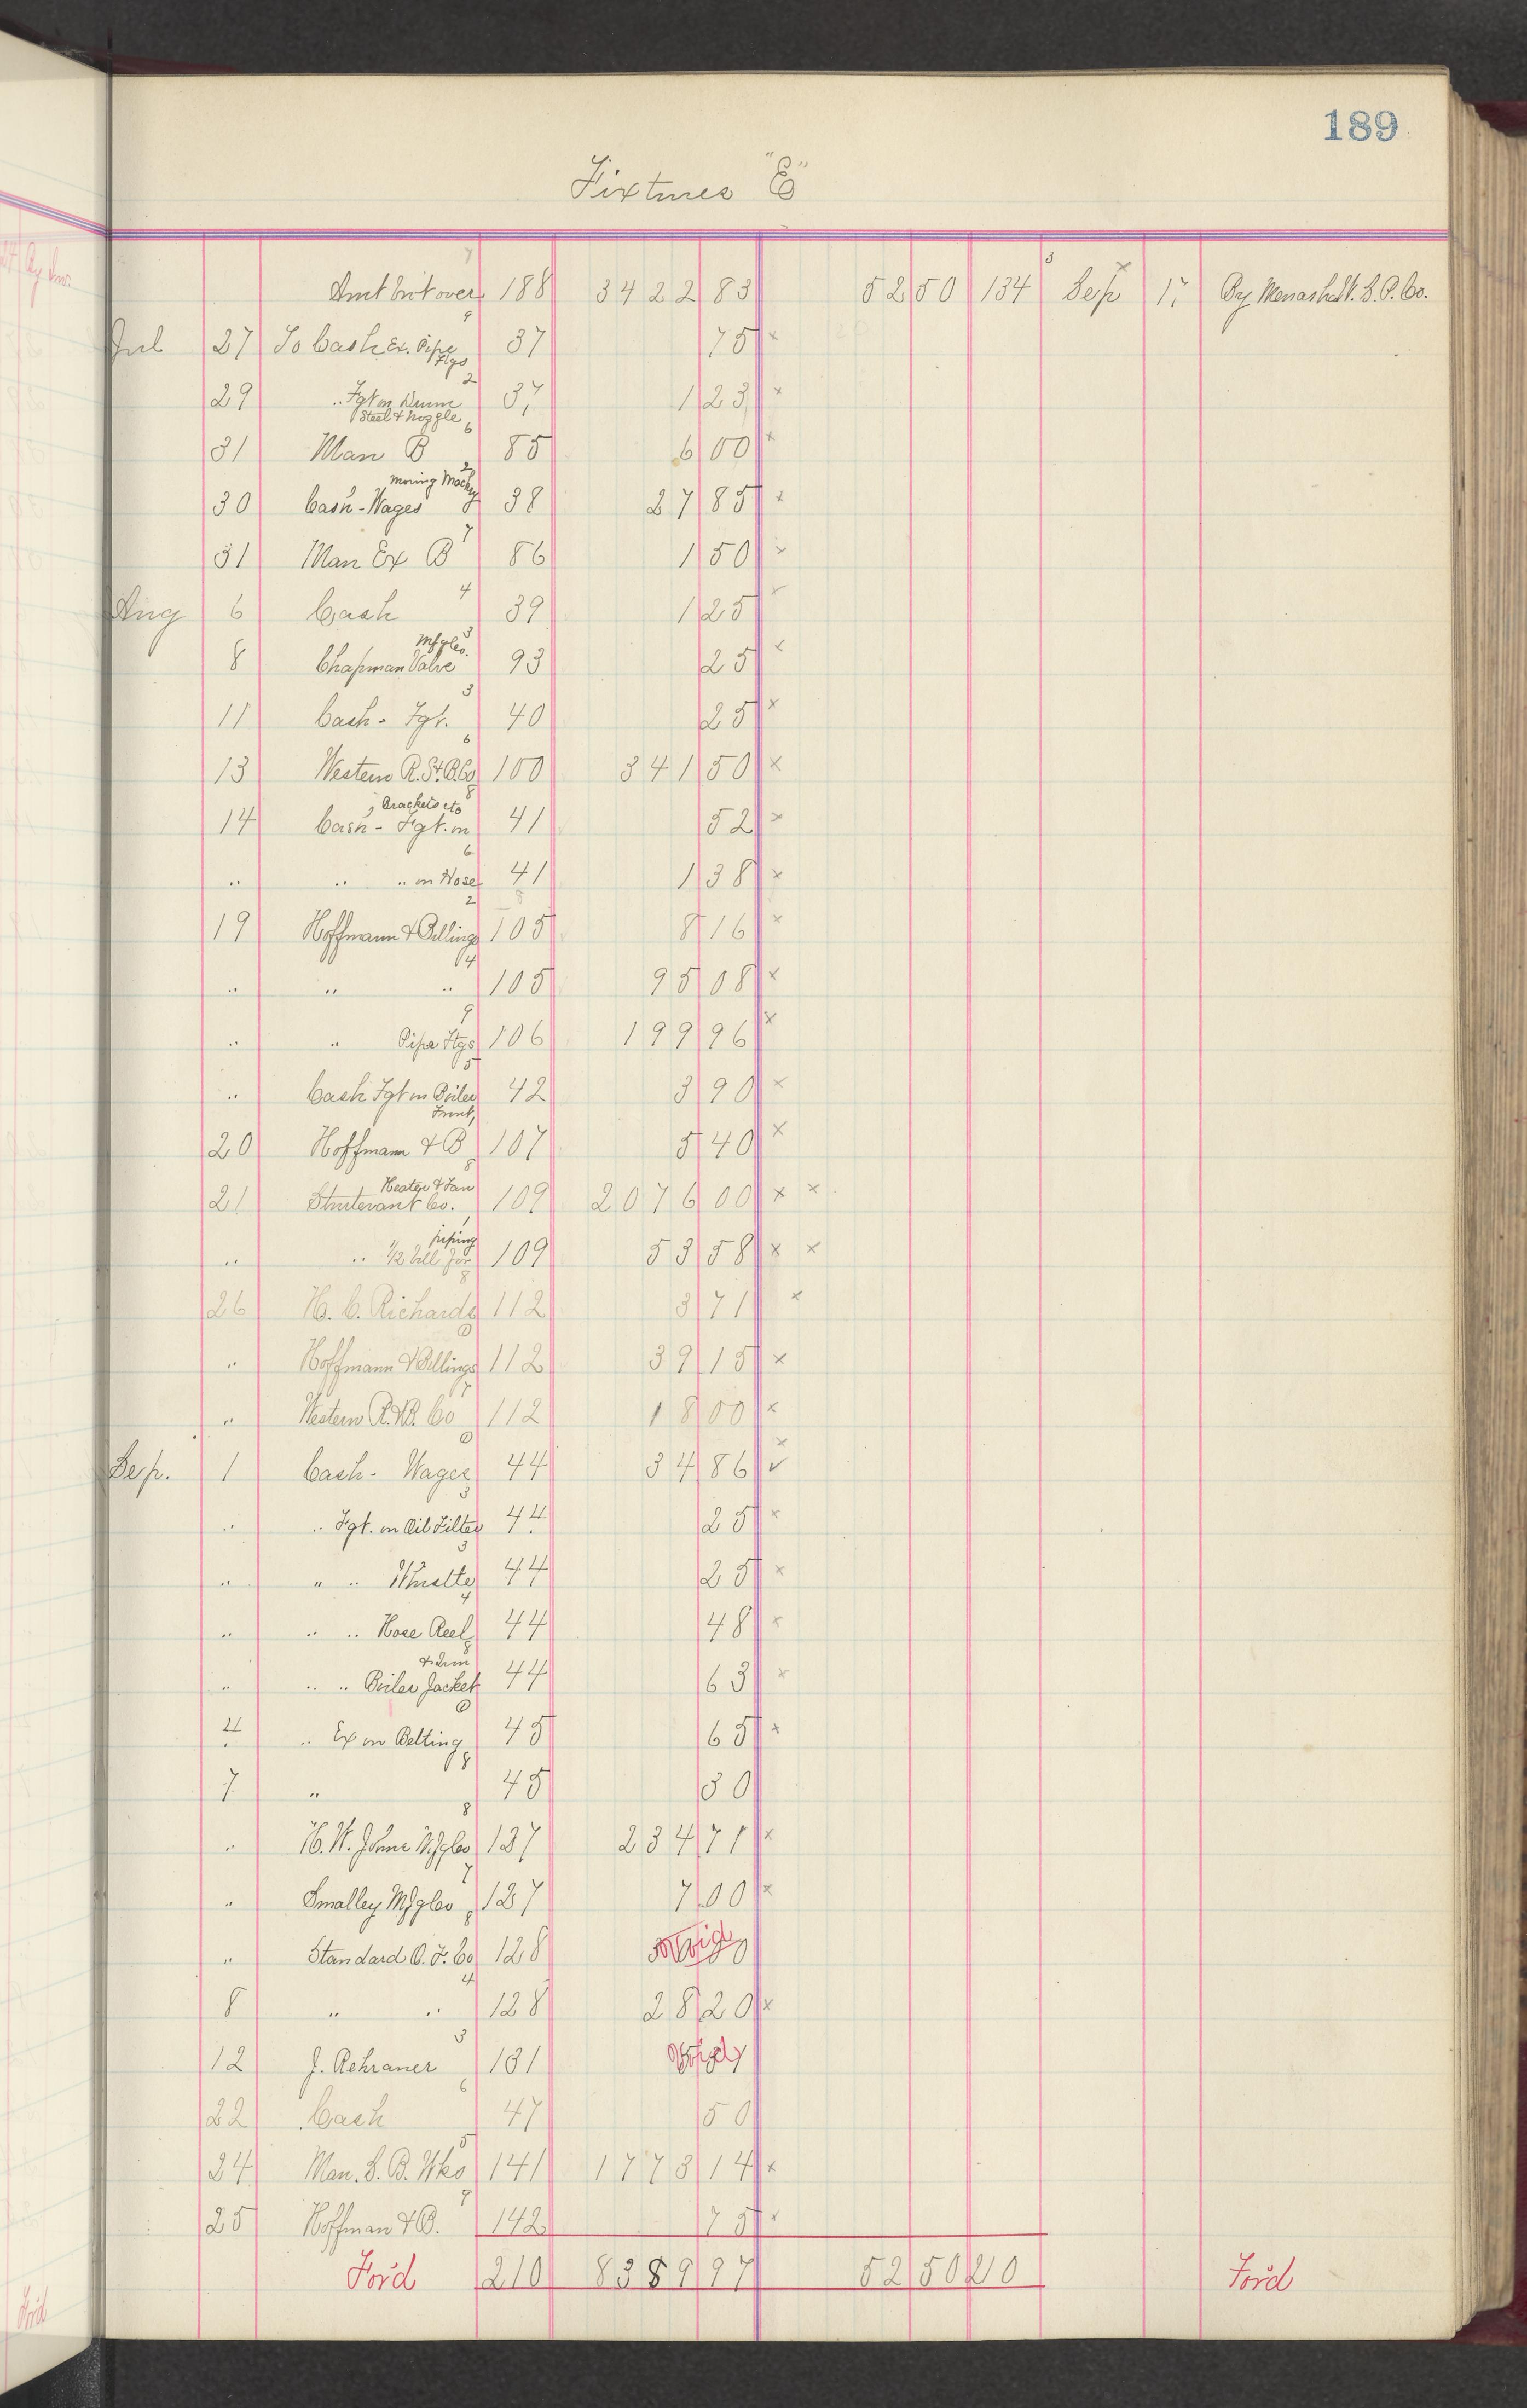 189
Fixtures "E"
Amt brt over 188 3422 83 52 50 134 Sep 17 By Menasha W. S. P. Co.
Jul 27 To Cash Ex. Pipe Ftgs 37 75
29 " Fgt on Drum Steel & Noggle 37 1 23
31 Man B 85 6 00
30 Cash - Wages moving Machy 38 27 85
31 Man Ex B 86 1 50
Aug 6 Cash 39 1 25
8 Chapman Valve Mfg Co. 93 25
11 Cash - Fgt. 40 25
13 Western R. St. B. Co 100 341 50
14 Cash - Fgt. on Brackets etc 41 52
" " " on Hose 41 1 38
19 Hoffmann & Billings 105 8 16
" " " 105 95 08
" " Pipe Ftgs 106 199 96
" Cash Fgt on Boiler Front 42 3 90
20 Hoffmann & B 107 5 40
21 Sturtevant Co. Heater & Fan 109 2076 00
" " 1/2 bill for piping 109 53 58
26 H. C. Richards 112 3 71
" Hoffmann & Billings 112 39 15
" Western R. & B. Co 112 18 00
Sep. 1 Cash - Wages 44 34 86
" " Fgt. on Oil Filter 44 25
" " " Whistle 44 25
" " " Hose Reel 44 48
" " " Boiler Jacket 44 63
4 " Ex on Belting 45 65
7 " 45 30
" H. W. Johns Mfg Co 127 234 71
" Smalley Mfg Co 127 7 00
" Standard O. F. Co 128 Void
8 " " 128 28 20
12 J. Rehraner 131 Void
22 Cash 47 50
24 Man. S. B. Wks 141 1773 14
25 Hoffman & B. 142 75
For'd 210 8389 97 52 50 210 For'd